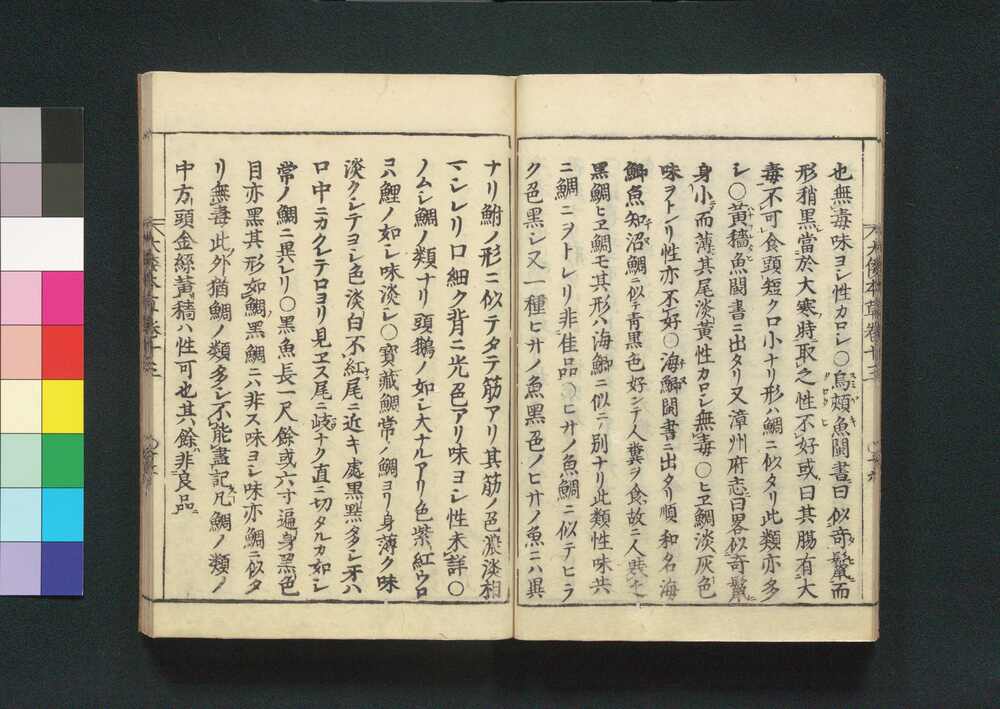 也無毒味ヨシ性カロシ○烏頰魚閩書曰似奇鬣而
形稍黒當於大寒時取之性不好或曰其腸有大
毒不可食頭短ク口小ナリ形ハ鯛ニ似タリ此類亦多
シ○黄穡魚閩書ニ出タリ又漳州府志曰畧似奇鬣
身小而薄其尾淡黄性カロシ無毒○ヒヱ鯛淡灰色
味ヲトレリ性亦不好○海鯽閩書ニ出タリ順和名海
鯽魚知沼鯛ニ似テ青黒色好ンテ人糞ヲ食故ニ人
黒鯛ヒヱ鯛モ其形ハ海鯽ニ似ニテ別ナリ此類性味共
ニ鯛ニヲトレリ非佳品○ヒサノ魚鯛ニ似テヒラ
ク色黒シ又一種ヒサノ魚黒色ノヒサノ魚ニハ異
ナリ鮒ノ形ニ似テタテ筋アリ其筋ノ色濃淡相
マシレリ口細ク背ニ光色アリ味ヨシ性未詳○
ノムシ鯛ノ類ナリ頭鵝ノ如シ大ナルアリ色紫紅ウロ
コハ鯉ノ如シ味淡シ○寳藏鯛常ノ鯛ヨリ身薄ク味
淡クシテヨシ色淡白不紅尾ニ近キ處黒㸃多シ牙ハ
口中ニカクレテ口ヨリ見ヱス尾ニ岐ナク直ニ切タルカ如シ
常ノ鯛ニ異レリ○黒魚長一尺餘或六寸遍身黒色
目亦黒其形如鯛黒鯛ニハ非ス味ヨシ味亦鯛ニ似タ
リ無毒此外猶鯛ノ類多シ不能盡記凡鯛ノ類ノ
中方頭金絲黄穡ハ性可也其餘非良品
大倭本草卷十三